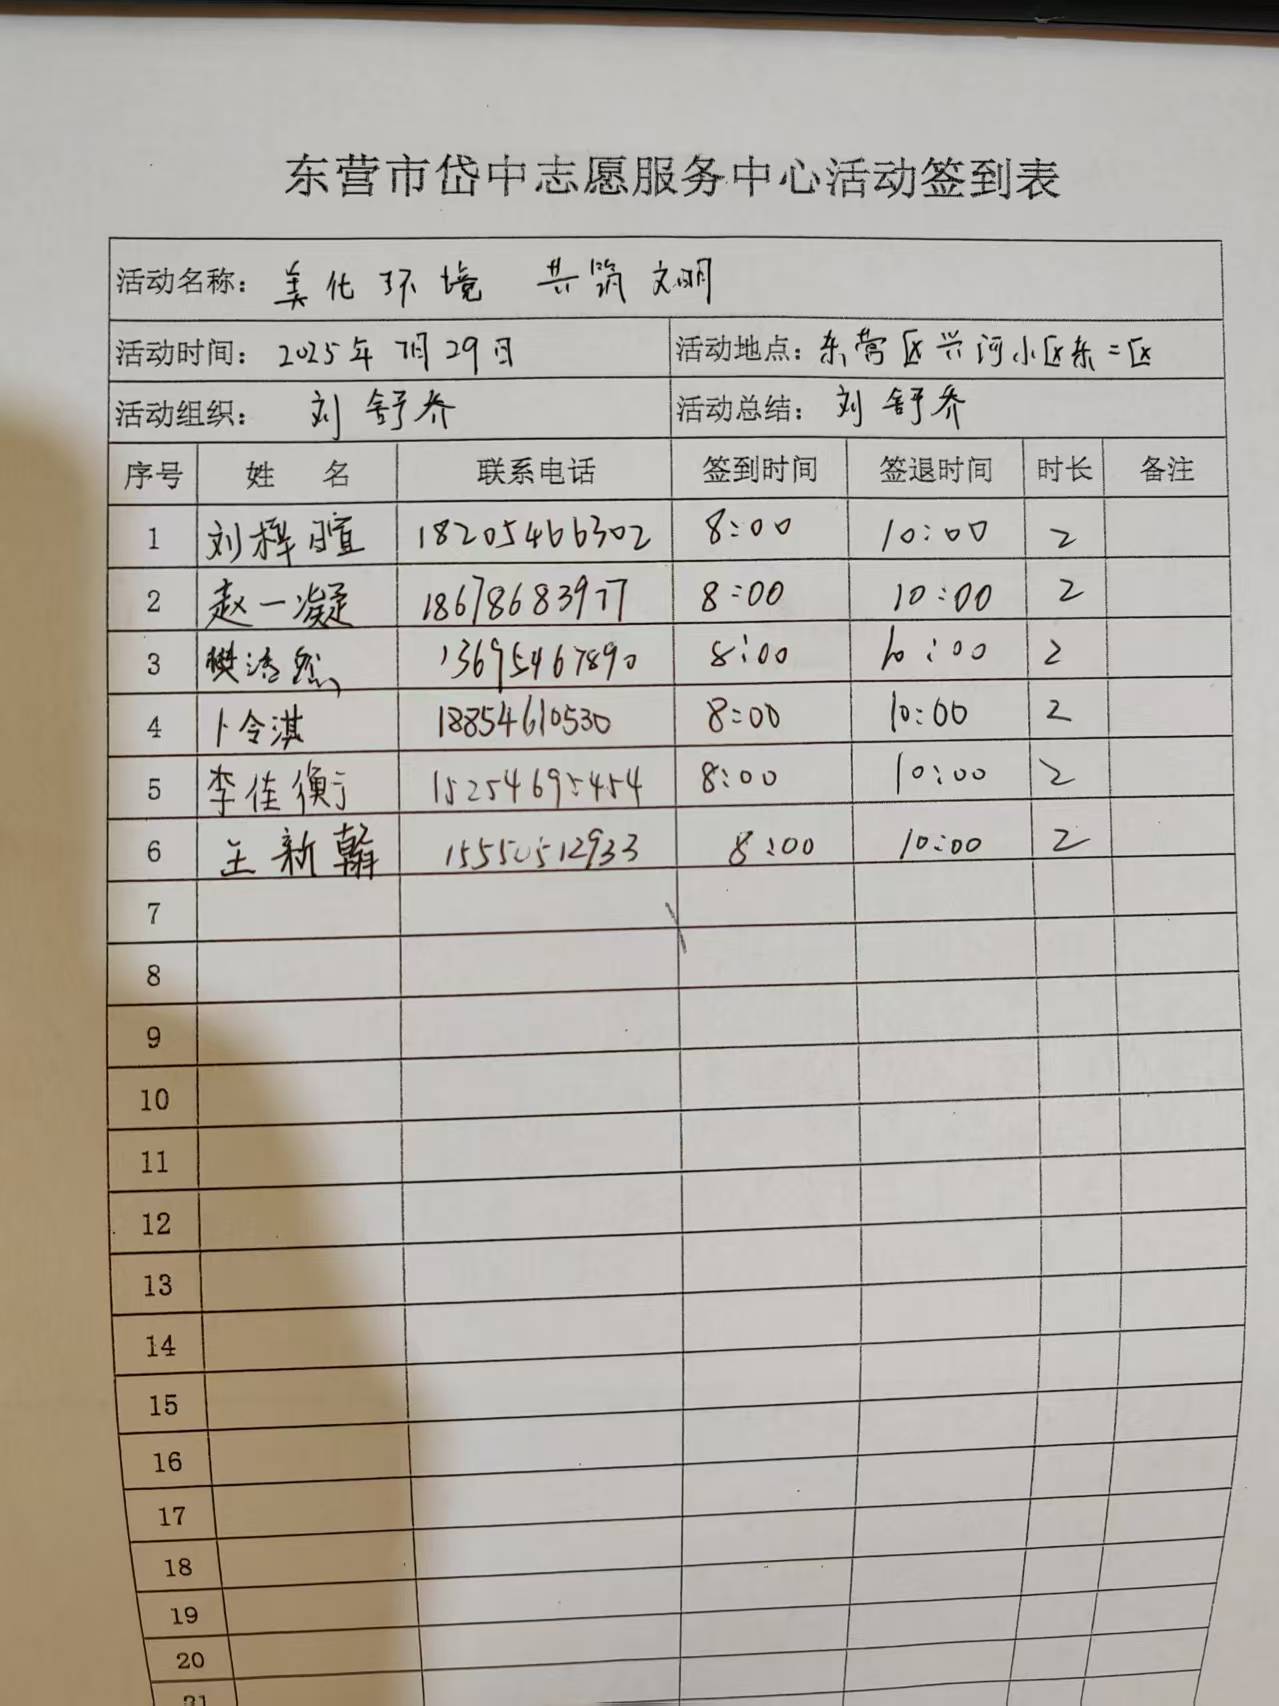 东营市岱中志愿服务中心活动签到表
活动名称：美化环境 共筑文明
活动时间：2025年7月29日 活动地点：东营区兴河小区东二区
活动组织：刘舒乔 活动总结：刘舒乔
序号 姓 名 联系电话 签到时间 签退时间 时长 备注
1 刘梓暄 18205466302 8:00 10:00 2
2 赵一凝 18678683977 8:00 10:00 2
3 樊浩然 13695467890 8:00 10:00 2
4 卜令淇 18854610530 8:00 10:00 2
5 李佳衡 15254695454 8:00 10:00 2
6 王新翰 15550512933 8:00 10:00 2
7
8
9
10
11
12
13
14
15
16
17
18
19
20
21